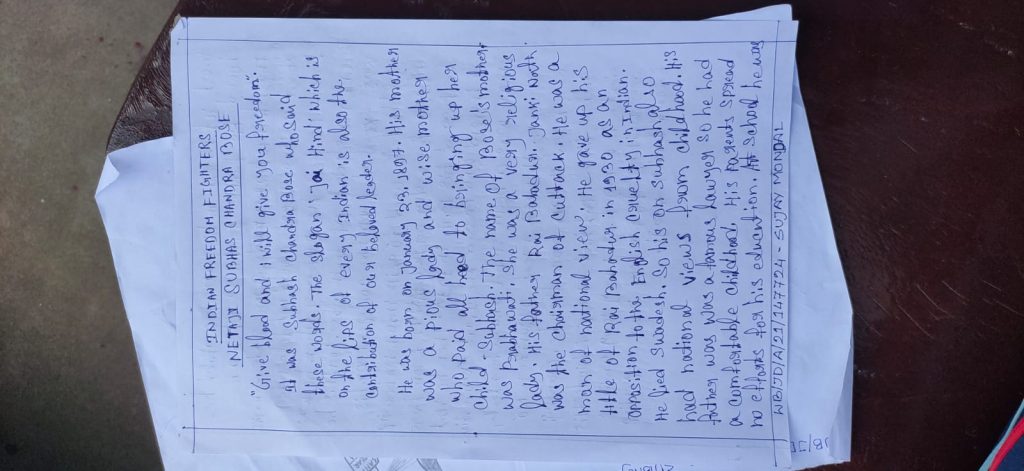 INDIAN FREEDOM FIGHTERS
NETAJI SUBHAS CHANDRA BOSE
"Give blood and I will give you freedom".
it was Subhash Chandra Bose who said
these words. The slogan 'Jai Hind' which is
on the lips of every Indian is also the
contribution of our beloved leader.
He was born on January 23, 1897. His mother
was a pious lady and wise mother
who paid all heed to bringing up her
child - Subhash. The name of Bose's mother
was Prabhawati. She was a very religious
lady. His father Rai Bahadur. Janki Nath.
was the chairman of Cuttack. He was a
man of national view. He gave up his
title of Rai Bahadur in 1930 as an
opposition to the English cruelty in Indian.
He lied Swadesh. So his on Subhash also
had national views from childhood. His
father was a famous lawyer so he had
a comfortable childhood. His parents spread
no efforts for his education. At school he was
WB/JD/A/21/147724 - SUJAY MONDAL
WB/JD